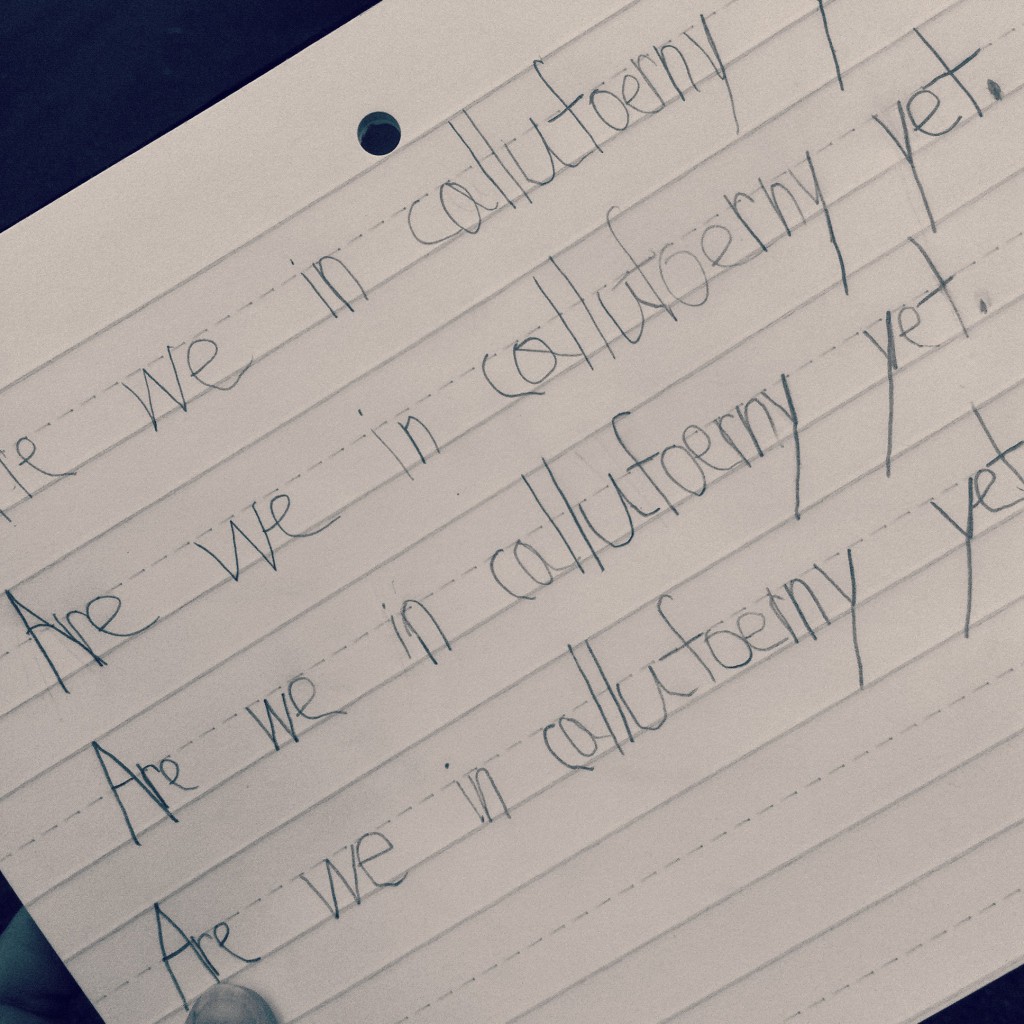 Are we in callufoerny y
Are we in callufoerny yet.
Are we in callufoerny yet.
Are we in callufoerny yet